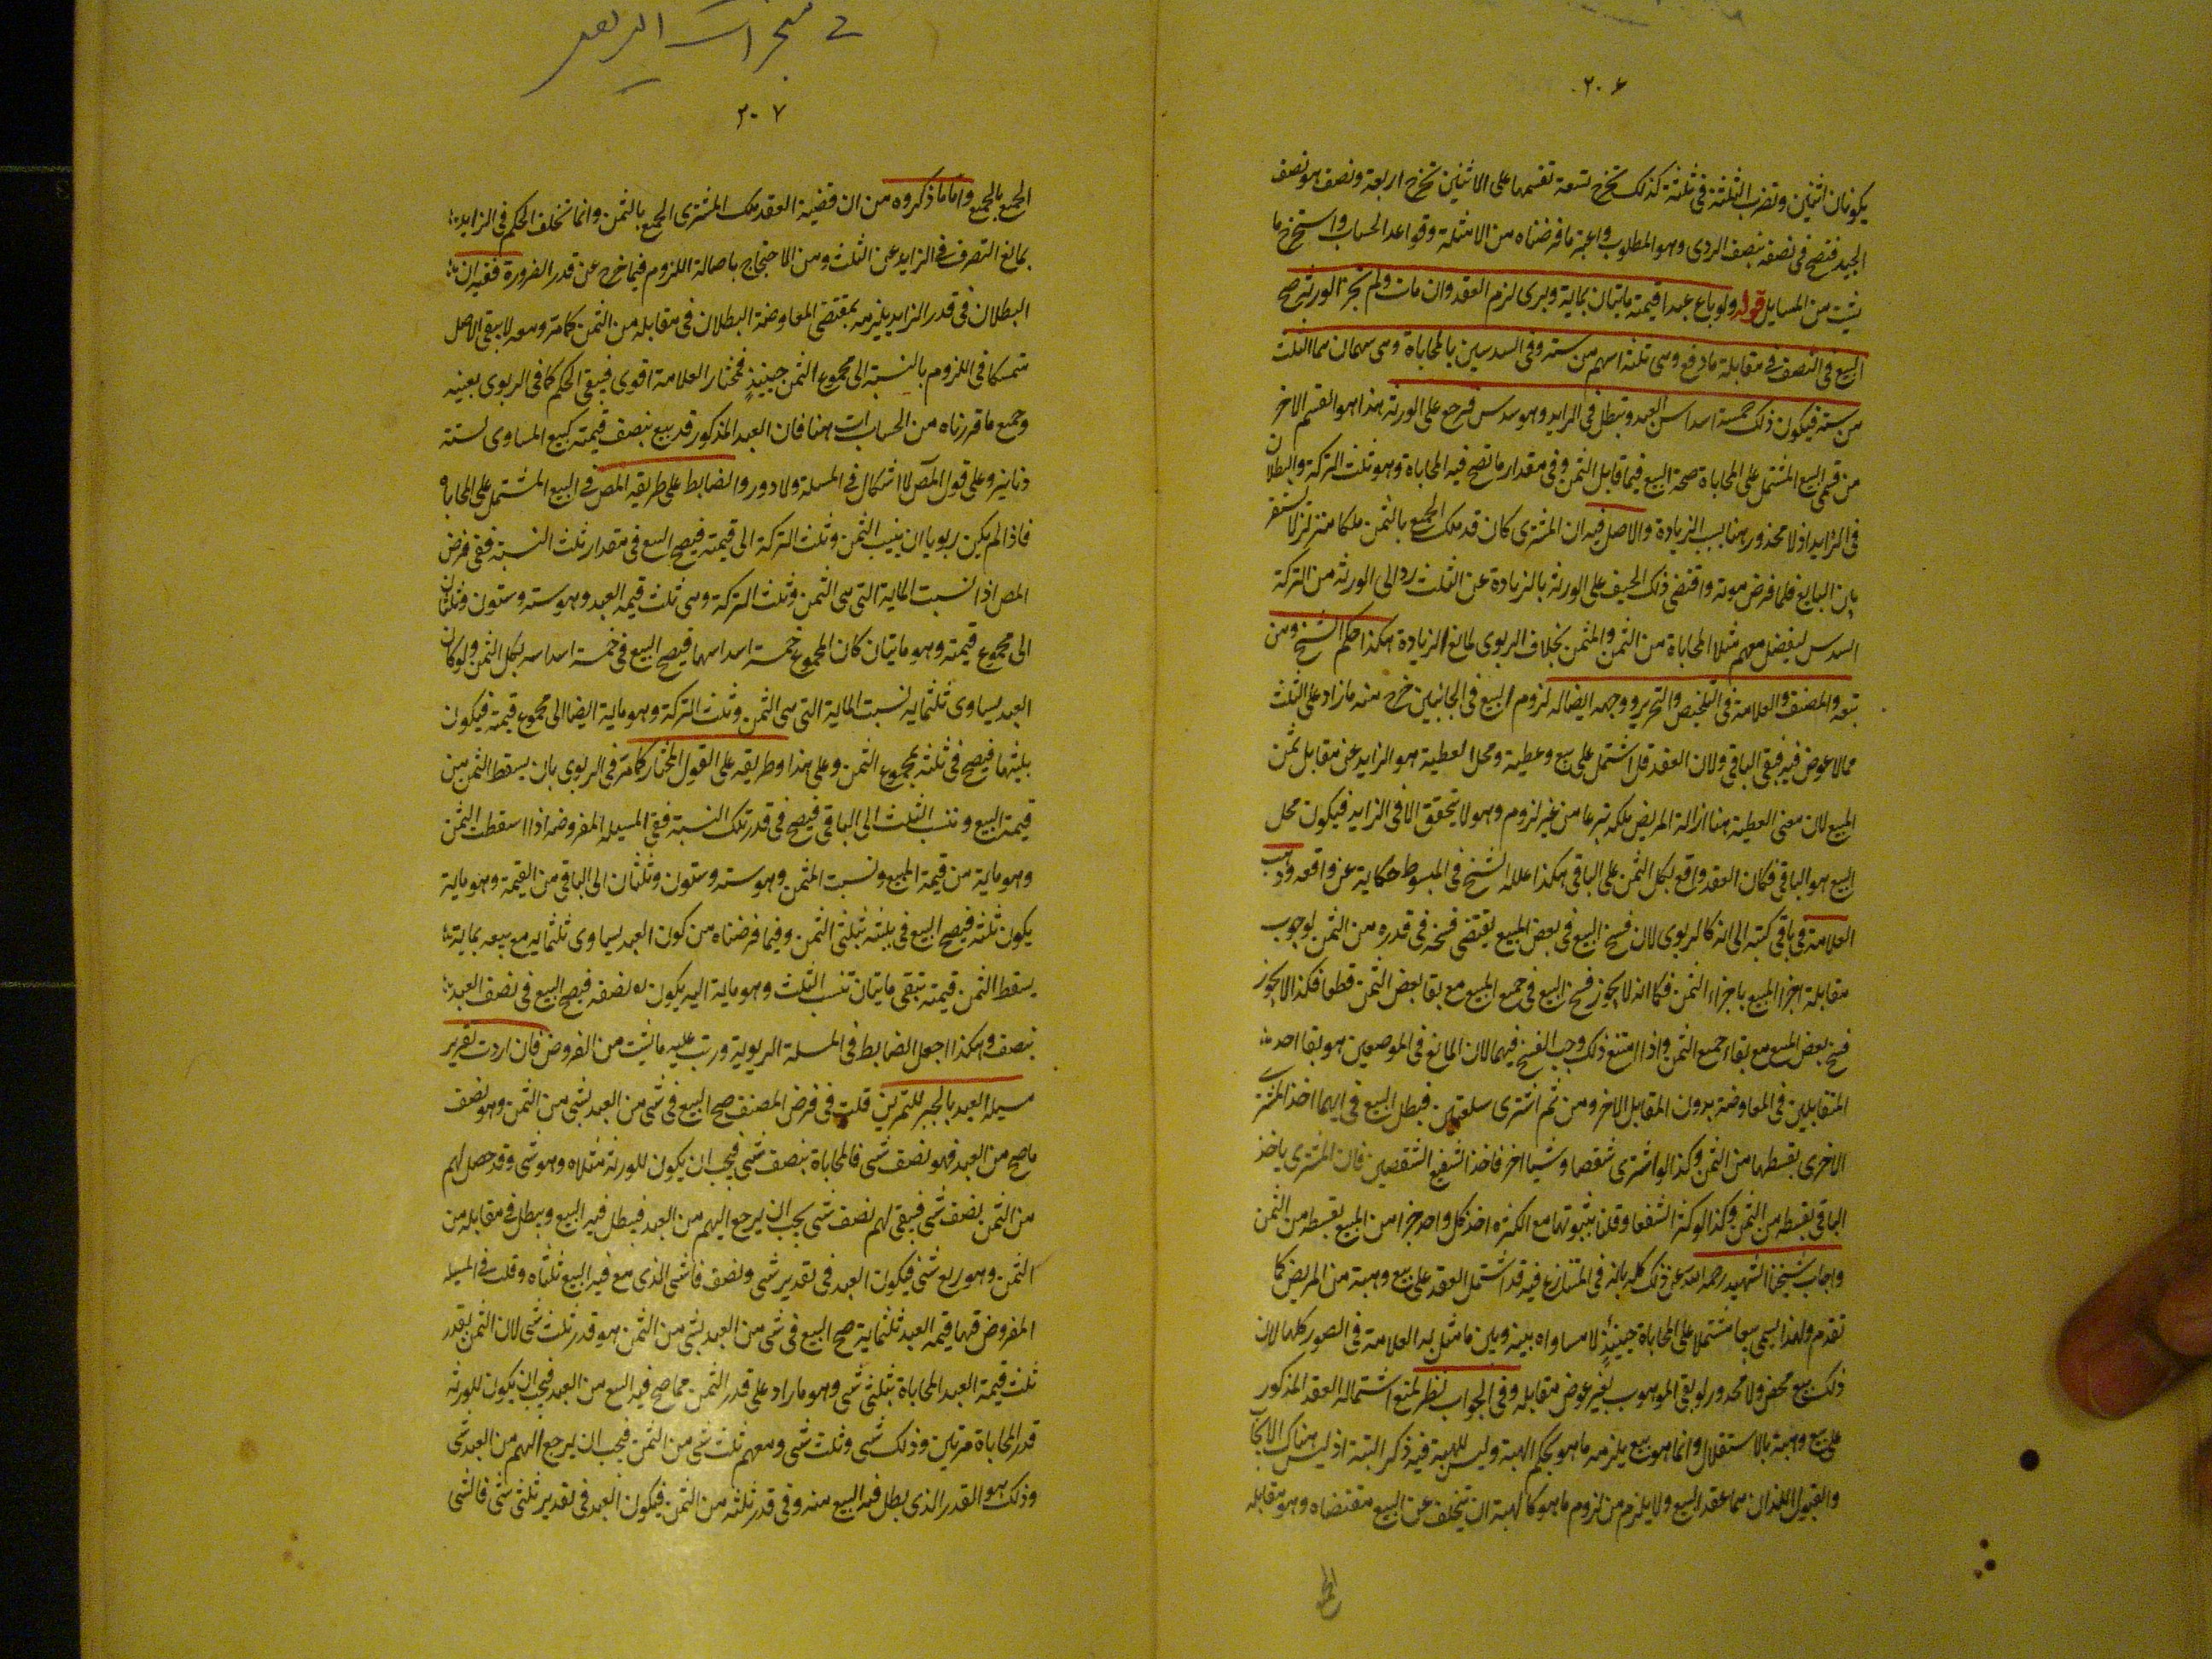 ۲۰۶
يكونان اثنين وتضرب الثلثة في ثلثة كذلك تخرج تسعة تقسمها على الاثنين تخرج اربعة ونصف هو نصف
الجيد فتصح في نصفه بنصف الردى وهو المطلوب واعتبر ما فرضناه من الامثلة وقواعد الحساب واستخرج ما
شئت من المسايل قوله ولو باع عبدا قيمته مايتان بماية وبرى لزم العقد وان مات ولم تجز الورثة صح
البيع في النصف في مقابلة ما دفع وهى ثلثة اسهم من ستة وفي السدسين بالمحاباة وهى سهمان هما الثلث
من ستة فيكون ذلك خمسة اسداس العبد وتبطل في الزايد وهو سدس فيرجع على الورثة هذا هو القسم الاخر
من قسمى البيع المشتمل على المحاباة صحة البيع فيما قابل الثمن وفي مقدار ما تصح فيه المحاباة وهو ثلث التركة والبطلان
في الزايد اذ لا محذور هنا بسبب الزيادة والاصل فيه ان المشترى كان قد ملك الجميع بالثمن ملكا متزلزلا يستقر
بان البايع فلما فرض موته واقتضى ذلك الحيف على الورثة بالزيادة عن الثلث رد الى الورثة من التركة
السدس ليفضل معهم مثلا المحاباة من الثمن والمثمن بخلاف الربوى لمانع الزيادة هكذا حكم الشيخ ومن
تبعه والمصنف والعلامة في التلخيص والتحرير ووجهه ايضا له لزوم البيع في الجانبين خرج منه ما زاد على الثلث
مما لا عوض فيه فبقى الباقي ولان العقد قد اشتمل على بيع وعطية ومحل العطية هو الزايد عن مقابل ثمن
المبيع لان معنى العطية هنا ازالة المريض ملكه تبرعا من غير لزوم وهو لا يتحقق الا في الزايد فيكون محل
البيع هو الباقي فكان العقد واقع بكل الثمن على الباقي هكذا علله الشيخ في المبسوط حكاية عن واقعه وذهب
العلامة في باقي كتبه الى انه كالربوى لان فسخ البيع في بعض المبيع يقتضى فسخه في قدره من الثمن لوجوب
مقابلة اجزا المبيع باجزاء الثمن فكما انه لا يجوز فسخ البيع في جميع المبيع مع بقا بعض الثمن قطعا فكذا لا يجوز
فسخ بعض المبيع مع بقاء جميع الثمن واذا امتنع ذلك وجب الفسخ فيهما لان المانع في الموضعين هو بقا احد
المتقابلين في المعاوضة بدون المقابل الاخر ومن ثم اشترى سلعتين فبطل البيع في احدهما اخذ المشترى
الاخرى بقسطها من الثمن وكذا لو اشترى شقصا وشيئا اخر فاخذ الشفيع الشقص فان المشترى ياخذ
الباقي بقسطه من الثمن وكذا لو كثر الشفعا وقلنا بثبوتها مع الكثره اخذ كل واحد جزا من المبيع بقسطه من الثمن
واجاب شيخنا الشهيد رحمه الله عن ذلك كله بانه في المتنازع فيه قد اشتمل العقد على بيع وهبة من المريض كما
تقدم ولهذا يسمى بيعا مشتملا على المحاباة حينئذ لا مساواه بينه وبين ما مثل به العلامة في الصور كلها لان
ذلك بيع محض ولا محذور لو بقى الموهوب بغير عوض مقابله وفي الجواب نظر لمنع اشتماله العقد المذكور
على بيع وهبة بالاستقلال وانما هو بيع يلزمه ما هو بحكم الهبة وليس للهبة فيه ذكر البتة اذ ليس هناك الا الايجاب
والقبول اللذان هما عقد البيع ولا يلزم من لزوم ما هو كالهبة ان يتخلف عن البيع مقتضاه وهو مقابلة
الجميع
۲۰۷
الجميع بالجميع واما ما ذكروه من ان قضية العقد ملك المشترى الجميع بالثمن وانما تخلف الحكم في الزايد
لمانع التصرف في الزايد عن الثلث ومن الاحتجاج باصالة اللزوم فيما خرج عن قدر الضرورة ففيه ان
البطلان في قدر الزايد يلزمه بمقتضى المعاوضة البطلان في مقابله من الثمن كما مر ومعه لا يبقى الاصل
متمسكا في اللزوم بالنسبة الى مجموع الثمن حينئذ فمختار العلامة اقوى فيبقى الحكم كما في الربوى بعينه
وجميع ما قررناه من الحساب ات هنا فان العبد المذكور قد بيع بنصف قيمته كبيع المساوى لستة
دنانير وعلى قول المص لا اشكال في المسئلة ولا دور والضابط على طريقه المص في البيع المشتمل على المحاباة
فاذا لم يكن ربويا ان ينسب الثمن وثلث التركة الى قيمته فيصح البيع في مقدار تلك النسبة ففى فرض
المص اذا نسبت الماية التى هى الثمن وثلث التركة وهى ثلث قيمه العبد وهو سته وستون وثلثان
الى مجموع قيمته وهو مايتان كان المجموع خمسة اسداسها فيصح البيع في خمسة اسداسه بكل الثمن ولو كان
العبد يساوى ثلثماية نسبت الماية التى هى الثمن وثلث التركة وهو ماية ايضا الى مجموع قيمته فيكون
ثلثيها فيصح في ثلثيه بمجموع الثمن وعلى هذا وطريقه على القول المختار كما مر في الربوى بان يسقط الثمن من
قيمة المبيع وتنسب الثلث الى الباقي فيصح في قدر تلك النسبة ففى المسئله المفروضه اذا اسقطت الثمن
وهو ماية من قيمة المبيع ونسبت الثلث وهو سته وستون وثلثان الى الباقي من القيمة وهو ماية
يكون ثلثيه فيصح البيع في ثلثيه بثلثى الثمن وفيما فرضناه من كون العبد يساوى ثلثمايه مع بيعه بماية
يسقط الثمن قيمته تبقى مايتان تنسب الثلث وهو ماية اليه يكون نصفه فيصح البيع في نصف العبد
بنصفه وهكذا اجعل الضابط في المسئلة الربوية ورتب عليه ما شئت من الفروض فان اردت تقرير
مسئله العبد بالجبر للتمرين قلت في فرض المصنف صح البيع في شى من العبد بشى من الثمن وهو نصف
ما صح من العبد فهو نصف شى فالمحاباة بنصف شى فيجب ان يكون للورثة مثلاه وهو شى وقد حصل لهم
من الثمن نصف شى فيبقى لهم نصف شى يجب ان يرجع اليهم من العبد فيبطل فيه البيع ويبطل في مقابله من
الثمن وهو ربع شى فيكون العبد في تقدير شى ونصف فالشى الذى صح فيه البيع ثلثاه وقلت في المسئله
المفروض فيها قيمه العبد ثلثماية صح البيع في شى من العبد بشى من الثمن هو قدر ثلث شى لان الثمن بقدر
ثلث قيمة العبد المحاباة بثلثى شى وهو ما زاد على قدر الثمن مما صح فيه البيع من العبد فيجب ان يكون للورثه
قدر المحاباة مرتين وذلك شى وثلث شى ومعهم ثلث شى من الثمن فيجب ان يرجع اليهم من العبد شى
وذلك هو القدر الذى بطل فيه البيع منه وفي قدر ثلثه من الثمن فيكون العبد في تقدير ثلثى شى فالشى